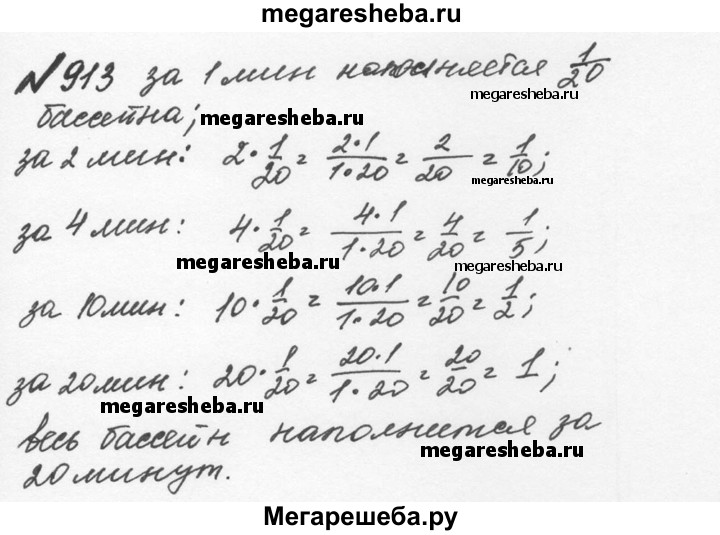 megaresheba.ru
№913 за 1 мин наполняется 1/20
megaresheba.ru
бассейна; megaresheba.ru
за 2 мин: 2·1/20 = 2·1/1·20 = 2/20 = 1/10;
megaresheba.ru
за 4 мин: 4·1/20 = 4·1/1·20 = 4/20 = 1/5;
megaresheba.ru megaresheba.ru
за 10 мин: 10·1/20 = 10·1/1·20 = 10/20 = 1/2;
за 20 мин: 20·1/20 = 20·1/1·20 = 20/20 = 1;
megaresheba.ru
весь бассейн наполнится за
megaresheba.ru
20 минут.
Мегарешеба.ру